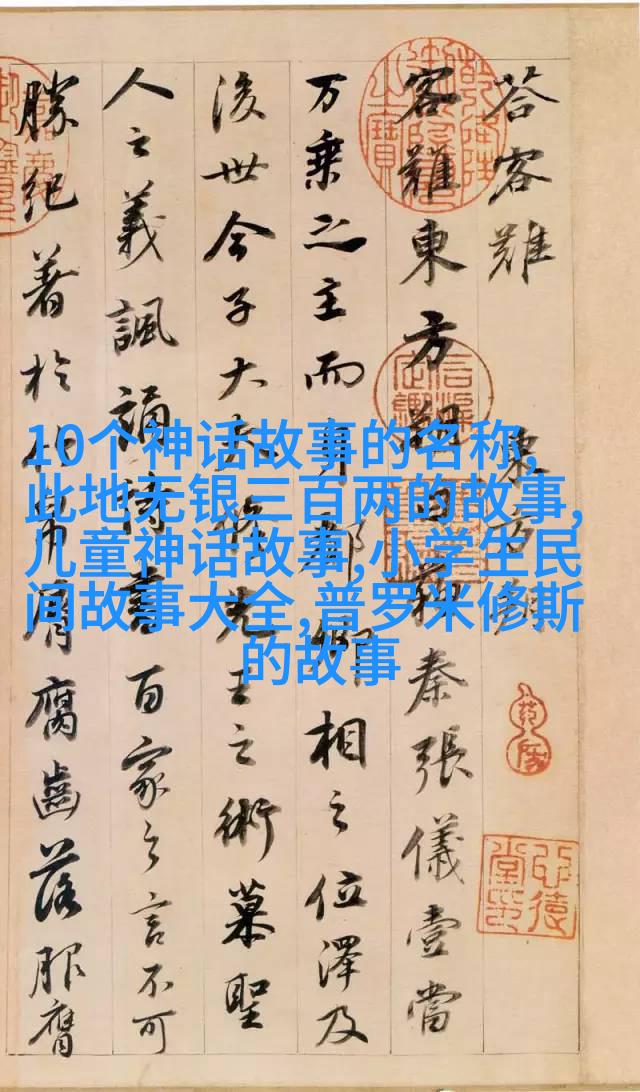 荅客難 東方朔
客難東方朔曰蘇秦張儀壹當
万乘之主而身都卿相之位澤及
後世今子大夫脩先王之術慕聖
人之義諷誦詩書百家之言不可
勝紀著於竹帛脣腐齒落服膺
10个神话故事的名称,
此地无银三百两的故事,
儿童神话故事,小学生民
间故事大全,普罗米修斯
的故事